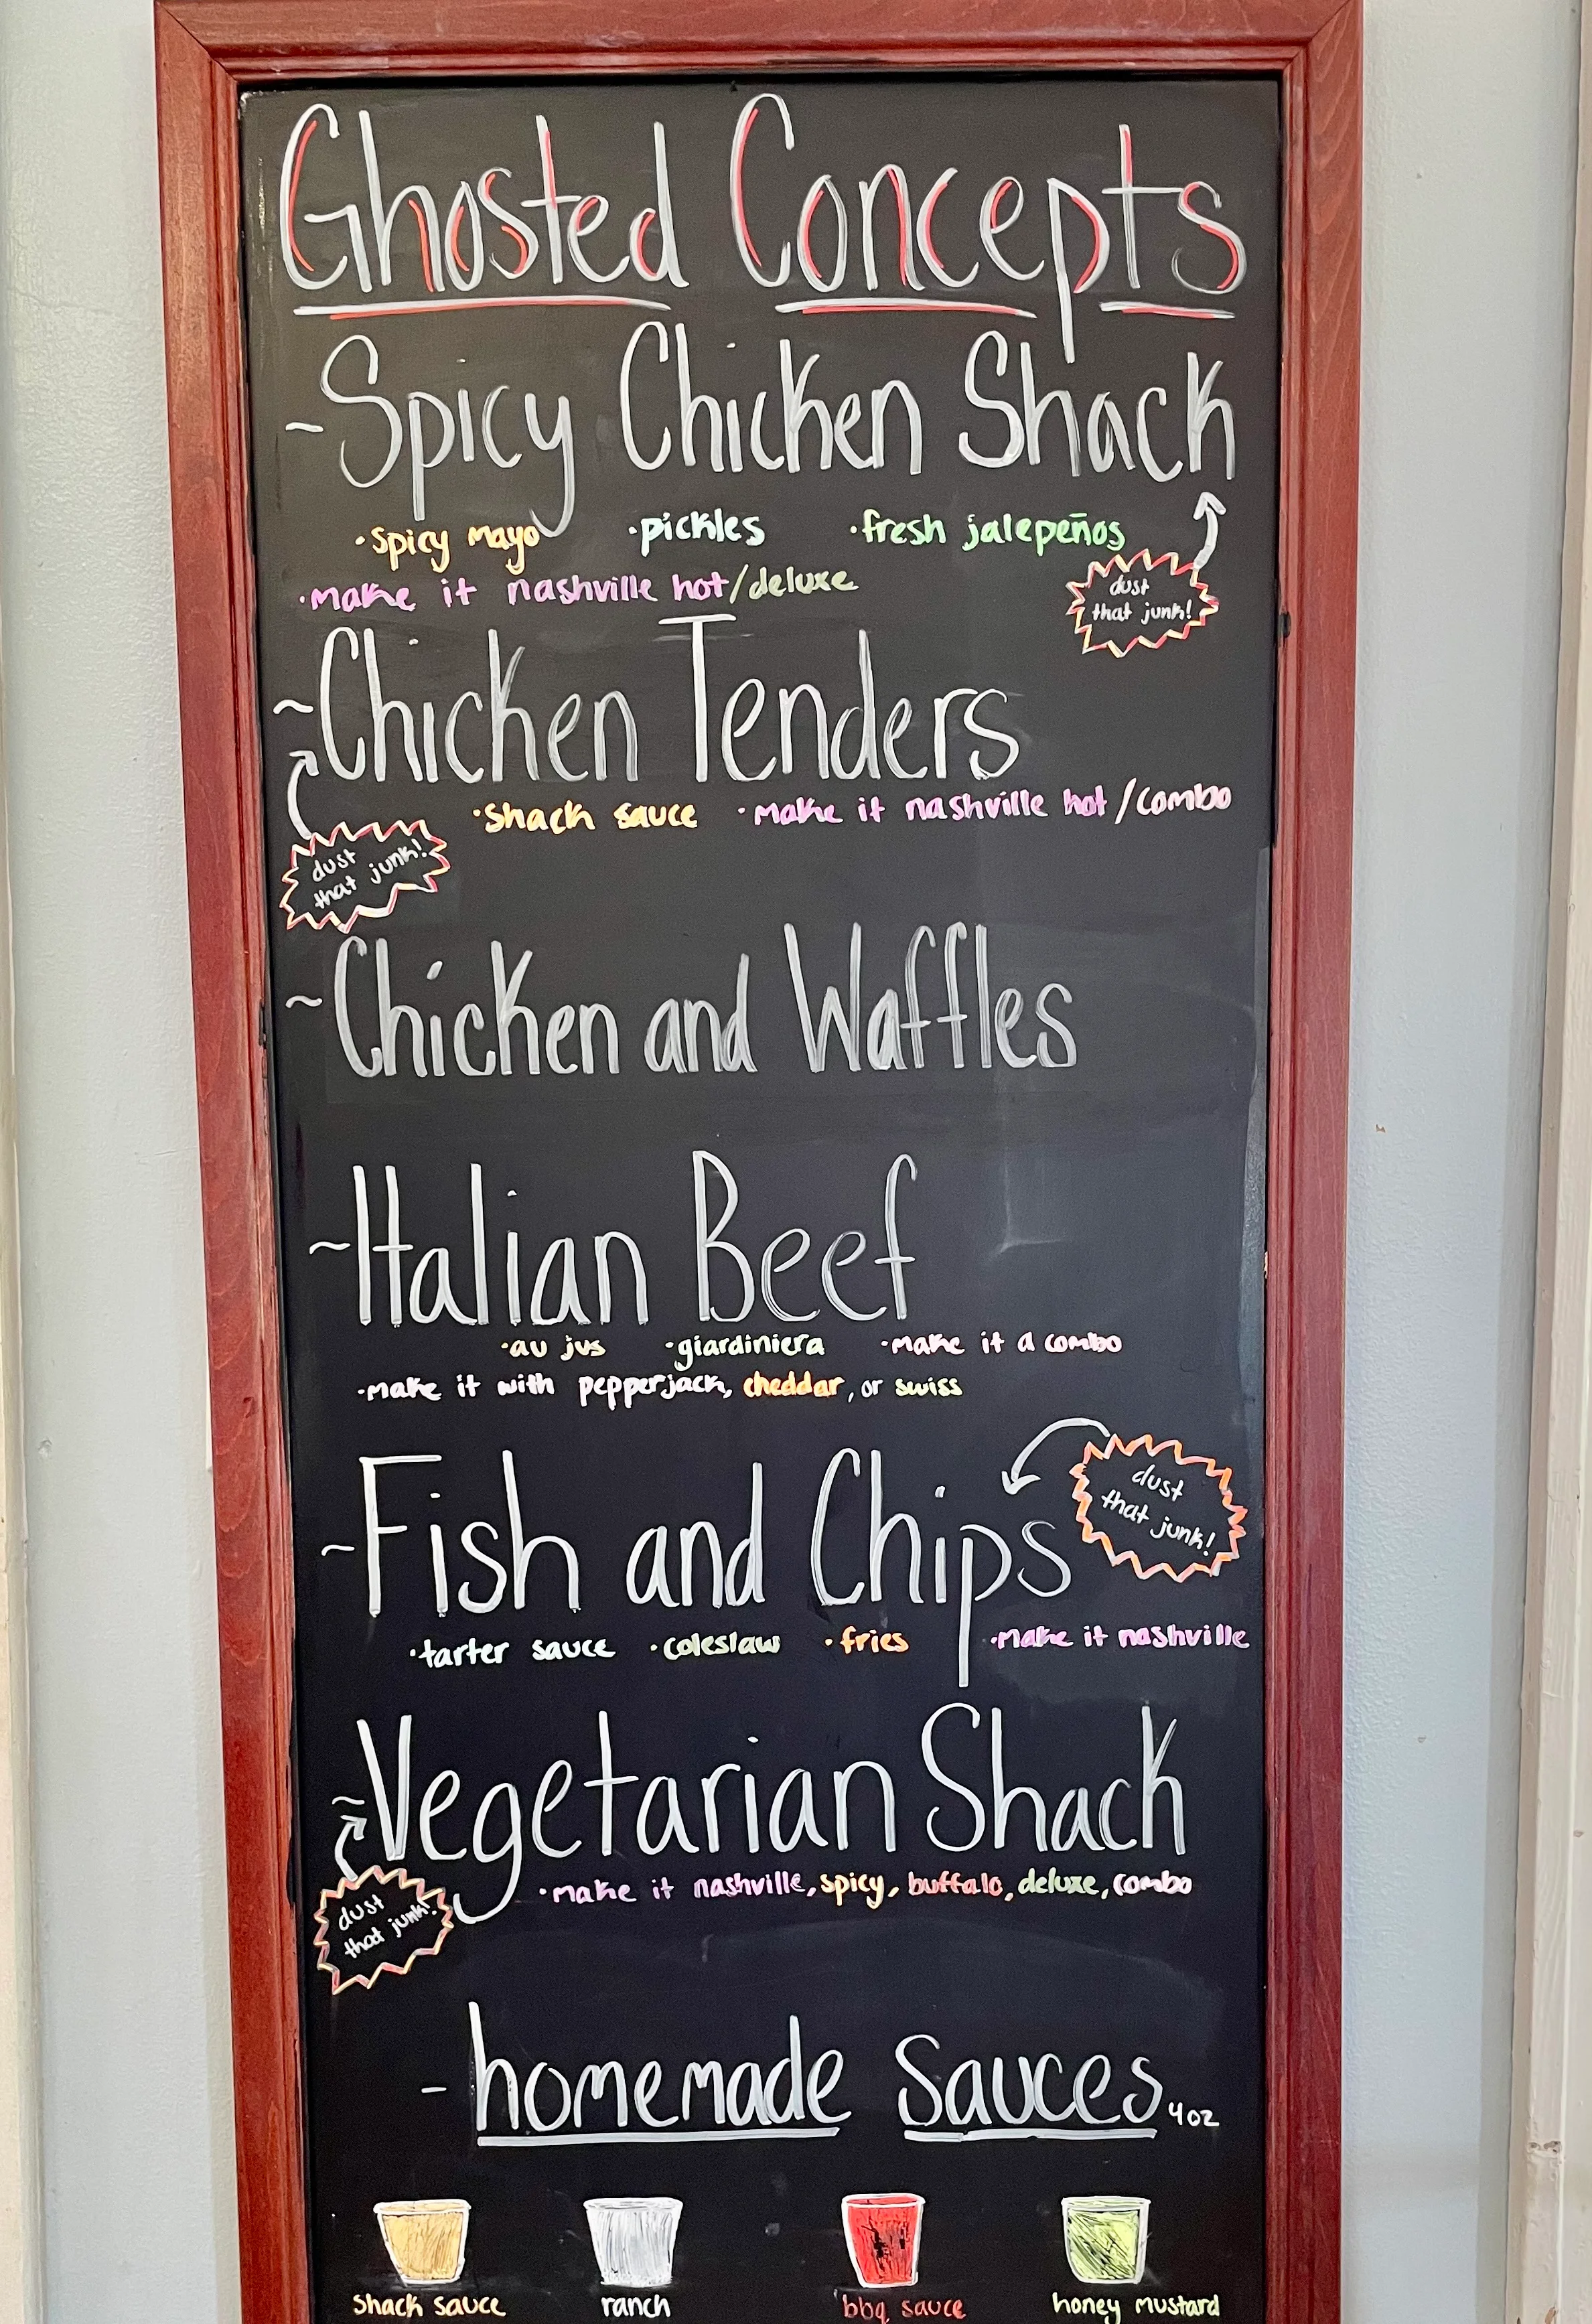 Ghosted Concepts
~Spicy Chicken Shack
·spicy mayo ·pickles ·fresh jalepeños
·make it nashville hot/deluxe
dust
that junk!
~Chicken Tenders
·shack sauce ·make it nashville hot/combo
dust
that junk!
~Chicken and Waffles
~Italian Beef
·au jus ·giardiniera ·make it a combo
·make it with pepperjack, cheddar, or swiss
~Fish and Chips
dust
that junk!
·tarter sauce ·coleslaw ·fries ·make it nashville
~Vegetarian Shack
·make it nashville, spicy, buffalo, deluxe, combo
dust
that junk!
- homemade sauces 4oz
shack sauce ranch bbq sauce honey mustard